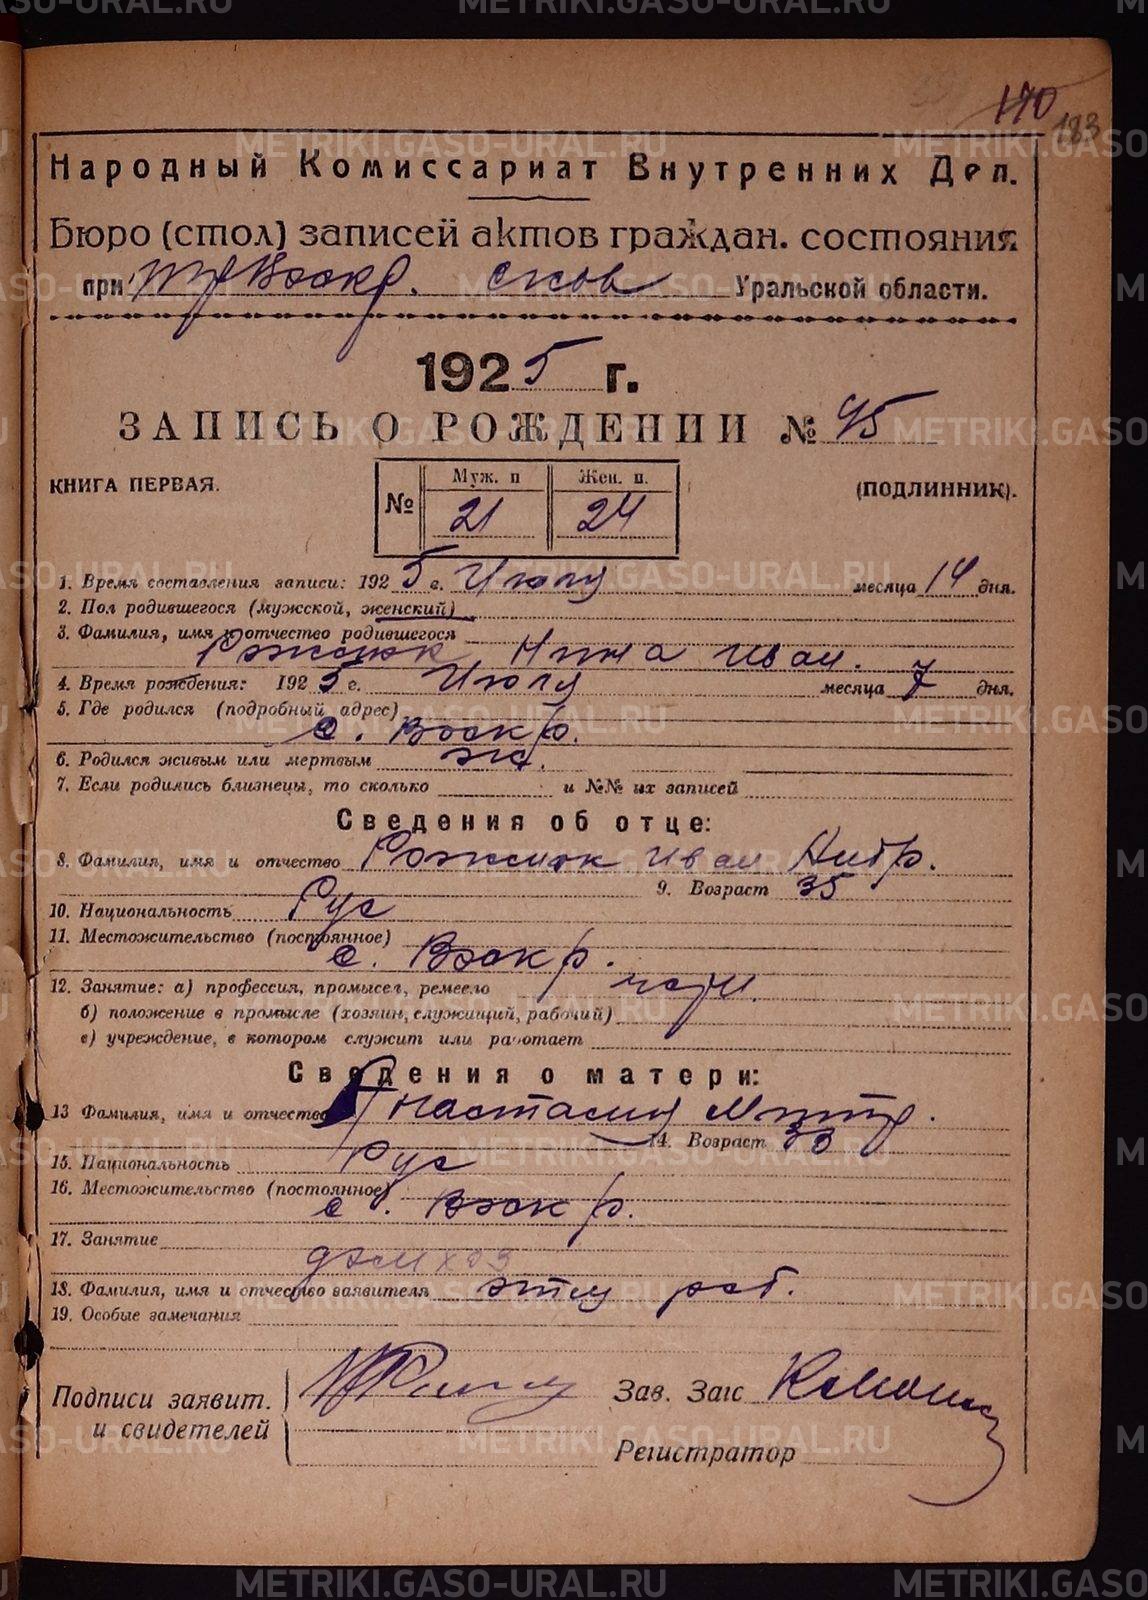 METRIKI.GASO-URAL.RU
170
183
Народный Комиссариат Внутренних Дел.
Бюро (стол) записей актов граждан. состояния
при Воскр. Уральской области.
1925 г.
ЗАПИСЬ О РОЖДЕНИИ № 45
КНИГА ПЕРВАЯ.
(ПОДЛИННИК).
№ Муж. п Жен. п.
21 24
1. Время составления записи: 1925 г. Июля месяца 14 дня.
2. Пол родившегося (мужской, женский)
3. Фамилия, имя и отчество родившегося
Нина Иван.
4. Время рождения: 1925 г. Июля месяца 7 дня.
5. Где родился (подробный адрес)
с. Воскр.
6. Родился живым или мертвым жив.
7. Если родились близнецы, то сколько и №№ их записей
Сведения об отце:
8. Фамилия, имя и отчество Иван Андр.
9. Возраст 35
10. Национальность Рус
11. Местожительство (постоянное)
с. Воскр.
12. Занятие: а) профессия, промысел, ремесло
б) положение в промысле (хозяин, служащий, рабочий)
в) учреждение, в котором служит или работает
Сведения о матери:
13 Фамилия, имя и отчество Анастасия Митр.
14. Возраст 33
15. Национальность Рус
16. Местожительство (постоянное)
с. Воскр.
17. Занятие
домхоз
18. Фамилия, имя и отчество заявителя отец реб.
19. Особые замечания
Подписи заявит.
и свидетелей
Зав. Загс
Регистратор